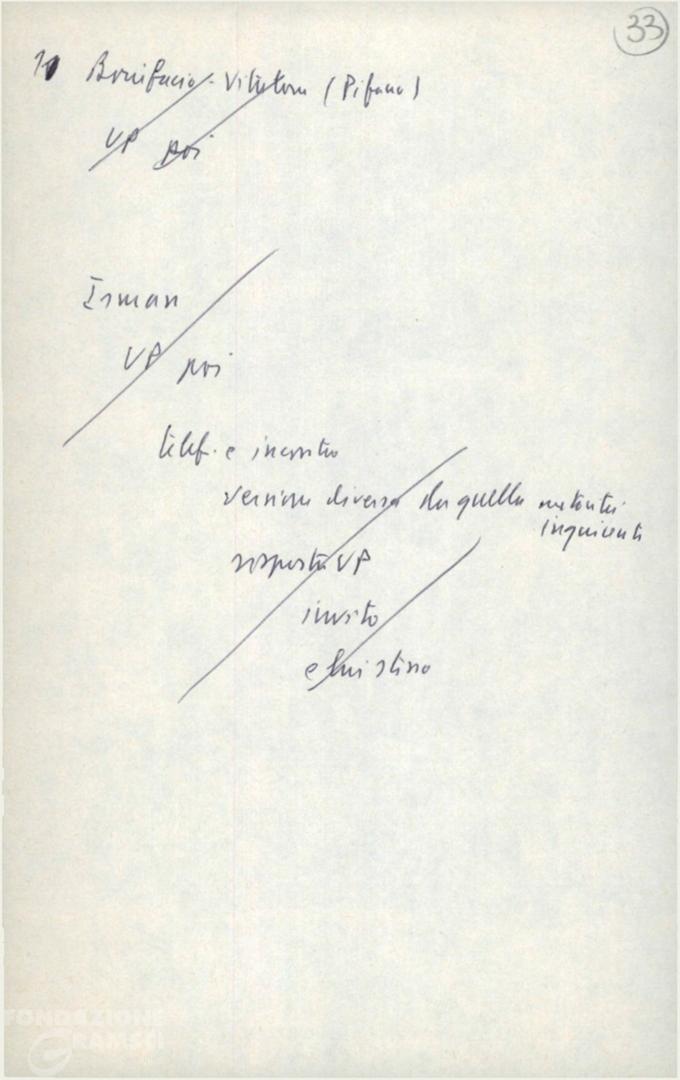 33
Bonifacio - Vitalone (Pifano)
VP poi
Isman
VP poi
telef. e incontro
versione diversa da quella
inquirenti
risposta VP
invito
e
FONDAZIONE
GRAMSCI